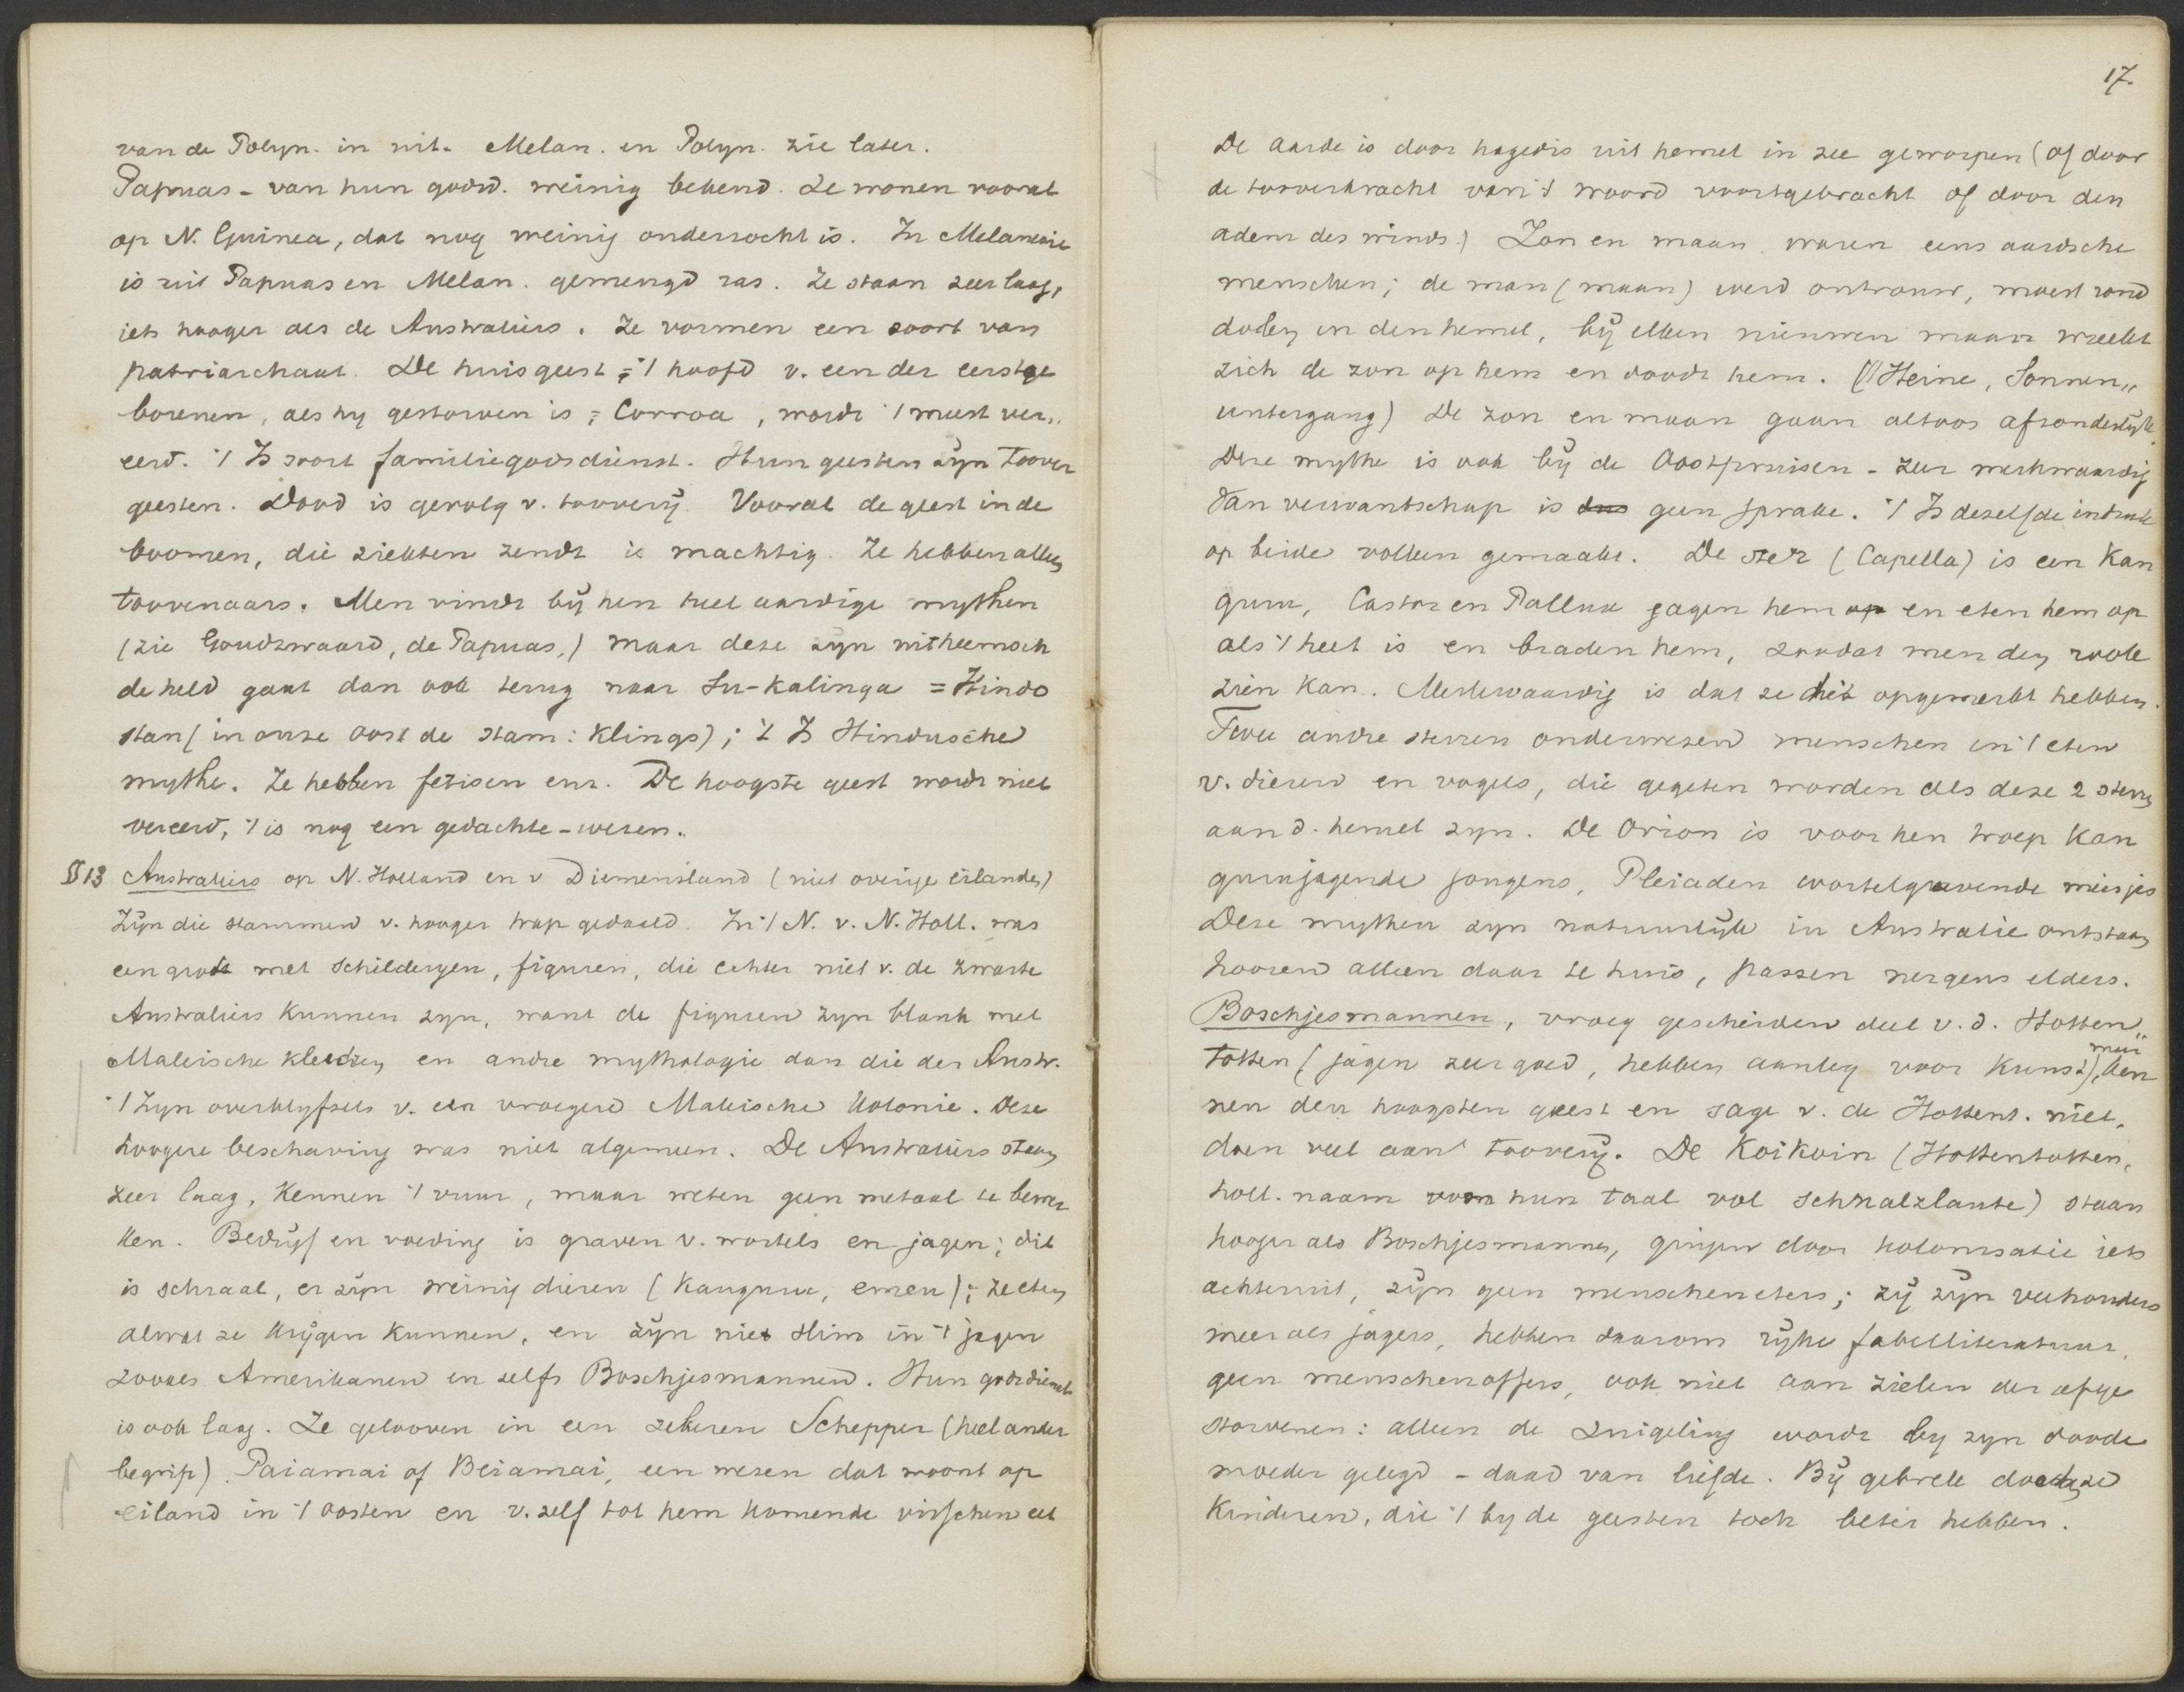 van de Polyn. in uit. Melan. en Polyn. zie later.
Papuas - van hun godsd. weinig bekend. Ze wonen vooral
op N. Guinea, dat nog weinig onderzocht is. In Melanesie
is uit Papuas en Melan. gemengd ras. Ze staan zeer laag,
iets hooger als de Australiers. Ze vormen een soort van
patriarchaat. De huisgeest = 't hoofd v. een der eerstge
borenen, als hy gestorven is = Corroa, wordt 't meest ver„
eerd. 't Is soort familiegodsdienst. Hun geesten zyn toover
geesten. Dood is gevolg v. toovery. Vooral de geest in de
boomen, die ziekten zendt is machtig. Ze hebben allen
toovenaars. Men vindt bij hen heel aardige mythen
(zie Goudswaard, de Papuas,) maar deze zyn uitheemsch
de held gaat dan ook terug naar Su-Kalinga = Hindo
stan (in onze oost de stam: Klings); 't Is Hindusche
mythe. Ze hebben fetisen enz. De hoogste geest wordt niet
vereerd, 't is nog een gedachte-wezen.
§ 13 Australiers op N. Holland en v Diemensland (niet overige eilanden)
Zijn die stammen v. hooger trap gedaald. In 't N. v. N. Holl. was
een grot met schilderyen, figuren, die echter niet v. de zwarte
Australiers kunnen zyn, want de figuren zyn blank met
Maleische kleedren en andre mythologie dan die der Austr.
't Zyn overblyfsels v. een vroegere Maleische kolonie. Deze
hoogere beschaving was niet algemeen. De Australiers staan
zeer laag, kennen 't vuur, maar weten geen metaal te bewer
ken. Bedrijf en voeding is graven v. wortels en jagen; dit
is schraal, er zijn weinig dieren (Kanguru, emeu); ze eten
alwat ze krijgen kunnen, en zijn niet slim in 't jagen
zooals Amerikanen en zelfs Boschjesmannen. Hun godsdienst
is ook laag. Ze gelooven in een zekeren Schepper (heel ander
begrip) Paiamai of Beiamai, een wezen dat woont op
eiland in 't oosten en v. zelf tot hem komende visschen eet
17.
De aarde is door hagedis uit hemel in zee geworpen (of door
de tooverkracht van 't woord voortgebracht of door den
adem des winds.) Zon en maan waren eens aardsche
menschen; de man (maan) werd ontrouw, moest rond
dolen in den hemel, bij elken nieuwen maan wreekt
zich de zon op hem en doodt hem. (// Heine, Sonnen„
untergang) De zon en maan gaan altoos afzonderlijk.
Deze mythe is ook bij de Oostpruisen - zeer merkwaardig
van verwantschap is dus geen sprake. 't Is dezelfde indruk
op beide volken gemaakt. De ster (Capella) is een Kan
guru, Castor en Pollux jagen hem op en eten hem op
als 't heet is en braden hem, zoodat men den rook
zien kan. Merkwaardig is dat ze dit opgemerkt hebben.
Twee andre sterren onderwezen menschen in 't eten
v. dieren en vogels, die gegeten worden als deze 2 sterren
aan d. hemel zyn. De Orion is voor hen troep Kan
gurujagende jongens, Pleiaden wortelgravende meisjes
Deze mythen zyn natuurlijk in Australie ontstaan
hooren alleen daar te huis, passen nergens elders.
Boschjesmannen, vroeg gescheiden deel v. d. Hotten„
totten (jagen zeer goed, hebben aanleg voor kunst), maar ken
nen den hoogsten geest en sage v. de Hottent. niet,
doen veel aan toovery. De Koikoin (Hottentotten,
holl. naam voor hun taal vol schnalzlaute) staan
hooger als Boschjesmannen, gingen door kolonisatie iets
achteruit, zijn geen menscheneters; zij zijn veehouders
meer als jagers, hebben daarom rijke fabelliteratuur,
geen menschenoffers, ook niet aan zielen der afge
storvenen: alleen de zuigeling wordt by zyn doode
moeder gelegd - daad van liefde. Bij gebrek dooden ze
Kinderen, die 't by de geesten toch beter hebben.